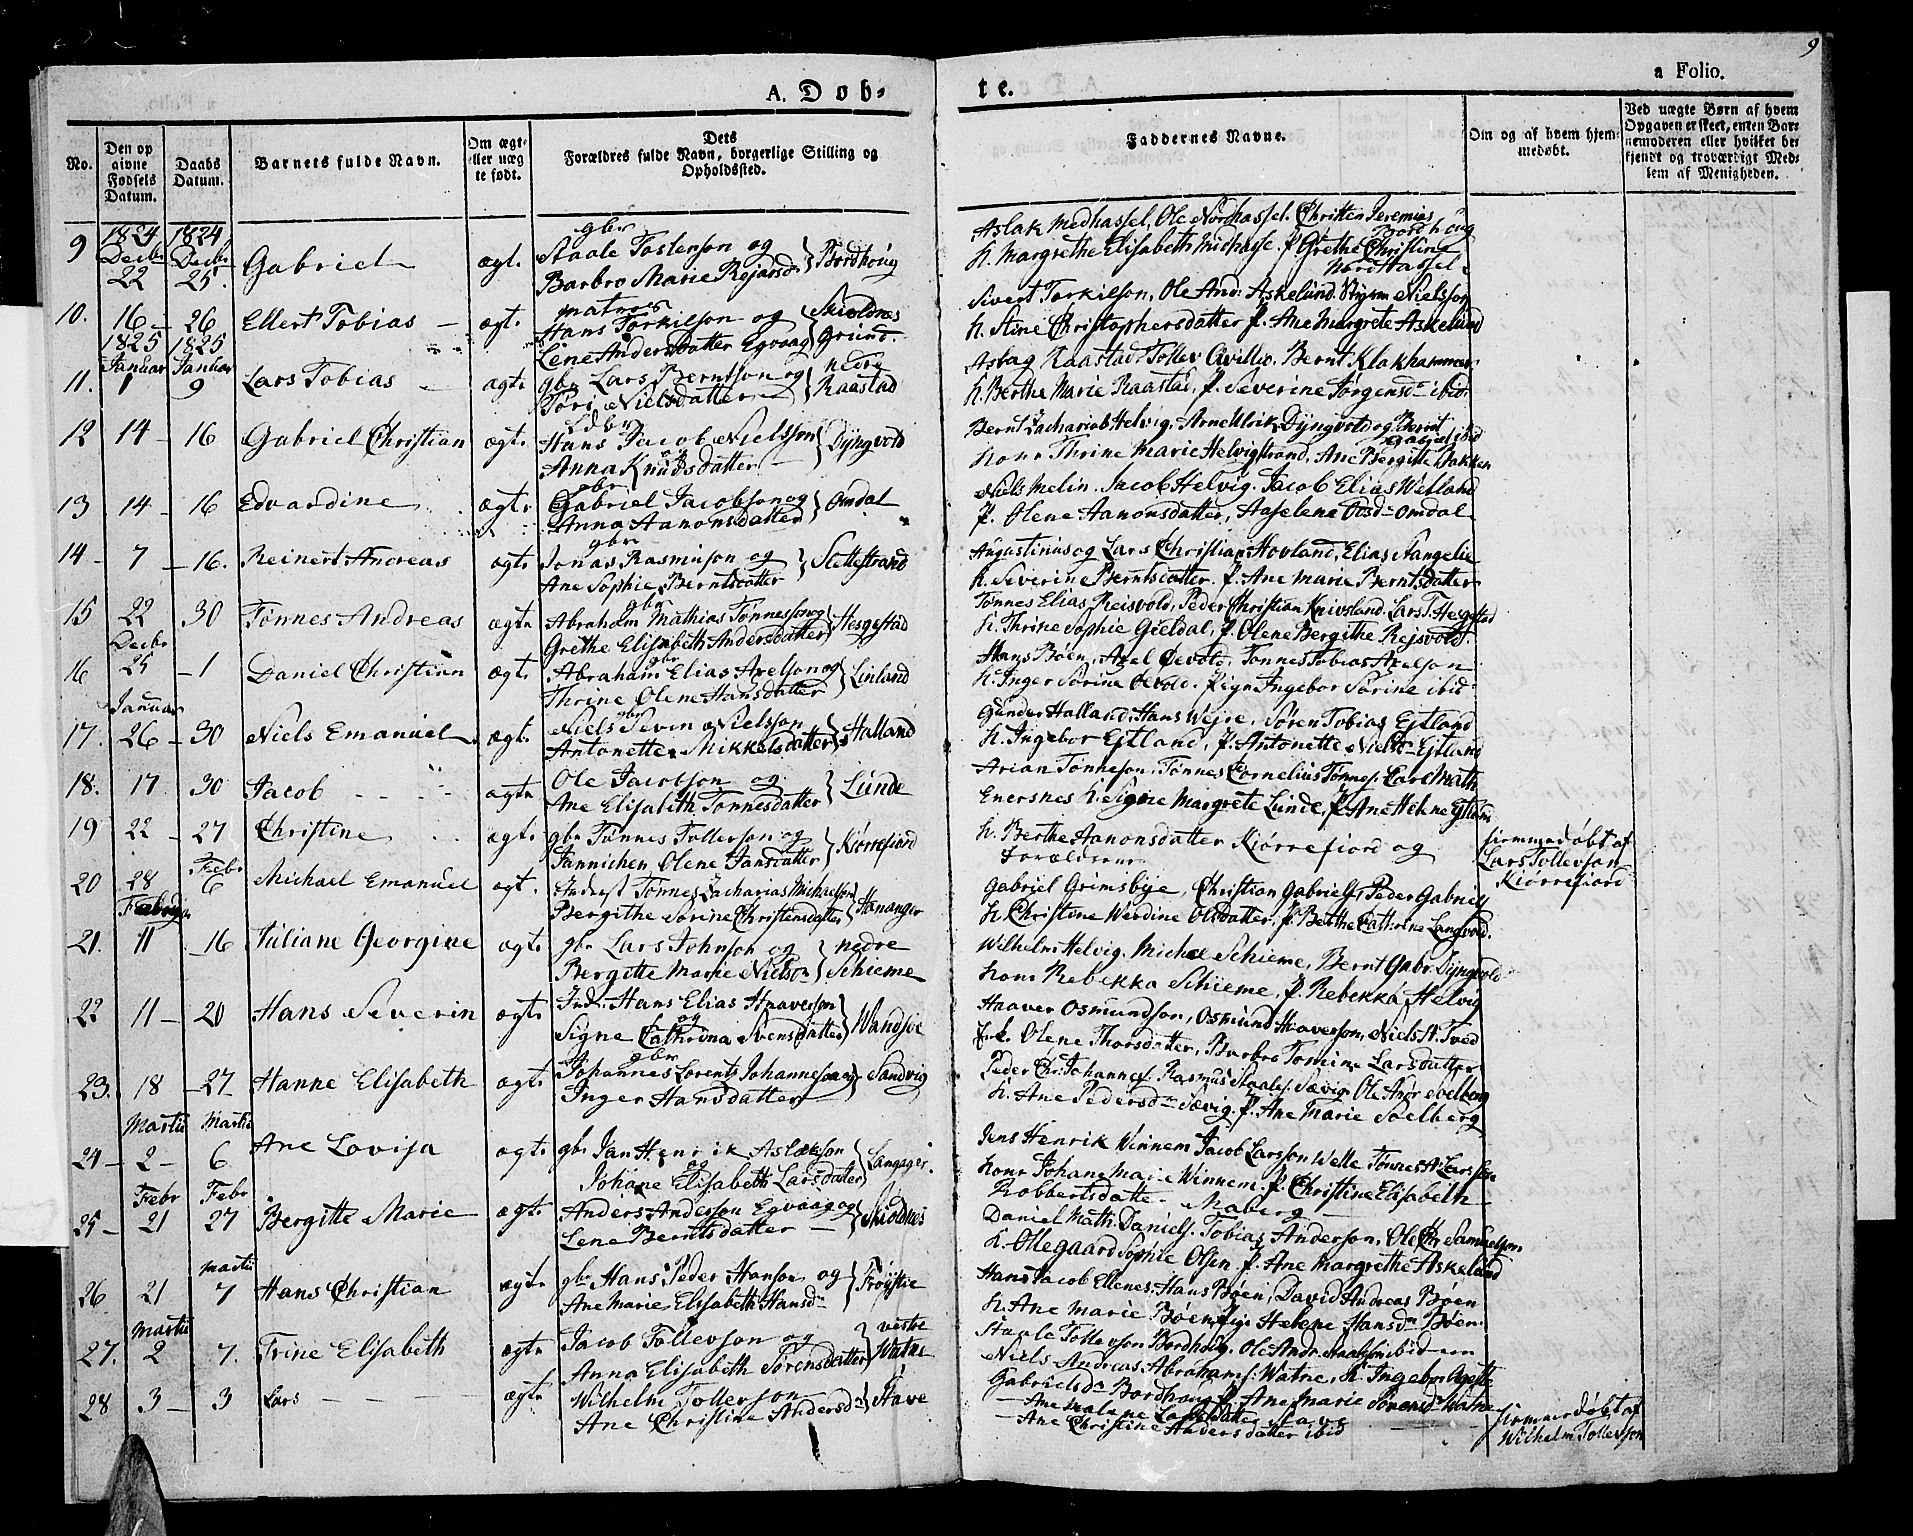 9
A. Døb-
te.
a Folio.
No.
Den op
givne
Fødsels
Datum.
Daabs
Datum.
Barnets fulde Navn.
Om ægt-
eller uæg
te født.
Dets
Forældres fulde Navn, borgerlige Stilling og
Opholdssted.
Faddernes Navne.
Om og af hvem hjem-
medøbt.
Ved uægte Børn af hvem
Opgaven er skeet, enten Bar-
nemoderen eller hvilket be-
kjendt og troværdigt Med-
lem af Menigheden.
1824 1824
9 Decbr 22 Decbr 25. Gabriel ægt. gbr Staale Tostenson og
Barbro Marie Rejarsd. Bordhoug
Aslak Medhassel, Ole Nordhassel. Christen Jeremias Bordhoug
K. Margrethe Elisabeth Midhasse. P. Grethe Christine
Nordhassel.
10. 16 - 26 Ellert Tobias ægt. matros Hans Torkilson og
Lene Andersdatter Egvaag Skioldnes Grund.
Sivert Torkilson, Ole And: Askelund. Nielsson
K. Stine Christophersdatter P. Ane Margrete Askelund
1825 1825
11. Januar 1 Januar 9 Lars Tobias ægt. gbr Lars Berntson og
Tori Nielsdatter nedre Raastad
Asbag Raastad Tollev Qvilie, Bernt Klakhammer
K. Berthe Marie Raastad, P. Severine Jørgensdr ibid.
12 14 - 16 Gabriel Christian ægt. Hans Jacob Nielsson
og Anna Knudsdatter Dyngvold
Bernt Zacharias Helvig, Arne Ulrik Dyngvold og Bernt
Gabriel ibid
Konr Thrine Marie Helvigstrand, Ane Bergitte Bakken
13 14 - 16 Edvardine ægt. gbr Gabriel Jacobson og
Anna Aanonsdatter Omdal
Niels Melin. Jacob Helvig. Jacob Elias Wetland
P. Olene Aanonsdatter, Aaselena Olsdr Omdal
14 - 7 - 16. Reinert Andreas ægt. gbr Jonas Rasmuson og
Ane Sophie Berntsdatter Slettestrand
Augustinus og Lars Christian Hovland, Elias Stangelie
K. Severine Berntsdatter. P. Ane Marie Berntsdatter
15 22 30 Tønnes Andreas ægt. gbr Abraham Mathias Tønnesson og
Grethe Elisabeth Andersdatter Hesgestad
Tønnes Elias Reisvold, Peder Christian Knivsland. Lars T. Hegestad
K. Thrine Sophie Gieldal, P. Olene Bergithe Rejsvold.
16 Decbr 25 - 1 Daniel Christian ægt. gbr Abraham Elias Axelson og
Thrine Olene Hansdatter Linland
Hans Bøen, Axel Øevold, Tønnes Tobias Axelson
K. Inger Sørine Øevold. Pign Ingebor Sørine ibid
17. Januar 26 - 30 Niels Emanuel ægt. gbr Niels Seven Nielsson
Antonette Mikkelsdatter Halland
Gunder Halland. Hans Wejre, Søren Tobias Ejtland
K. Ingebor Ejtland, P. Antonette Nielsdr Ejtland
18. 17 30 Jacob ægt. Ole Jacobson og
Ane Elisabeth Tønnesdatter Lunde
Arian Tønneson, Tønnes Cornelius Tønnes. Carl Math
Enersnes K. Signe Margrete Lunde, P. Ane Helene Ejtland
19 22 - 27 Christine ægt. gbr Tønnes Tollevson og
Jannichen Olene Jansdatter Kiørrefiord
K. Berthe Aanonsdatter Kiørrefiord og
Forældrene
hiemmedøbt af
Lars Tollevson
Kiørrefiord
20 28 Febr 6 Michael Emanuel ægt. Inderst Tønnes Zacharias Michaelson
Bergithe Sørine Christensdatter Hananger
Gabriel Grimsbye, Christian Gabriels. Peder Gabriels
K. Christine Werdine Olsdatter, P. Berthe Cathrine Langvold.
21. Februar 11 - 16 Juliane Georgine ægt. gbr Lars Johnson og
Bergitte Marie Nielsdr nedre Schieme
Wilhelm Helvig. Michel Schieme, Bernt Gabr. Dyngvold
Konr Rebekka Schieme, P. Rebekka Helvig
22 11 - 20 Hans Severin ægt. Ind. Hans Elias Haaverson
og Signe Cathrina Svensdatter Wandsøe
Haaver Osmundson, Osmund Haaverson, Niels A. Tved
Olene Thorsdatter, Barbro Tomine Larsdatter
23. 18 - 27 Hanne Elisabeth ægt. gbr Johannes Lorents Johanneson og
Inger Hansdatter Sandvig
Peder Chr. Johannes. Rasmus Staales. Sævig. Ole Andr Soelberg
K. Ane Pedersdr Sævig. P. Ane Marie Soelberg
24 - Martii 2 - Martii 6 Ane Lovisa ægt. gbr Jan Henrik Aslakson
og Johane Elisabeth Larsdatter Langager.
Jens Henrik Winnem Jacob Larsson Welle Tønnes A. Larsson
Konr Johane Marie Winnem. P. Christine Elisabeth
Robbertsdatter Maberg
25 - Febr 21 Febr 27 Bergitte Marie ægt. Anders Anderson Egvaag og
Lene Berntsdatter Skioldnes
Daniel Math. Daniels. Tobias Anderson. Ole Chr Samuelson
K. Ollegaard Sophie Olsen P. Ane Margrethe Askelund
26 21 Martii 7 Hans Christian ægt. gbr Hans Peder Hanson og
Ane Marie Elisabeth Hansdr Frøystie
Hans Jacob Ellenes, Hans Bøen, David Andreas Bøen
K. Ane Marie Bøen, Pige Helene Hansdr Bøen.
27. Martii 2 7. Trine Elisabeth ægt. Jacob Tollevson og
Anna Elisabeth Sørensdatter vestre Watne
Staale Tollevson Bordhoug. Ole Andr. Staalson ibid
Niels Andreas Abrahams. Watne, K. Ingebor Agethe
Gabrielsdr Bordhoug P. Ane Marie Sørensdr Watne
28 3 - 3 Lars ægt. Wilhelm Tollevson
Ane Christine Andersdr Stave
Ane Malene Larsdatter Stave
Ane Christine Andersdatter ibid
hiemmedøbt af
Wilhelm Tollevson